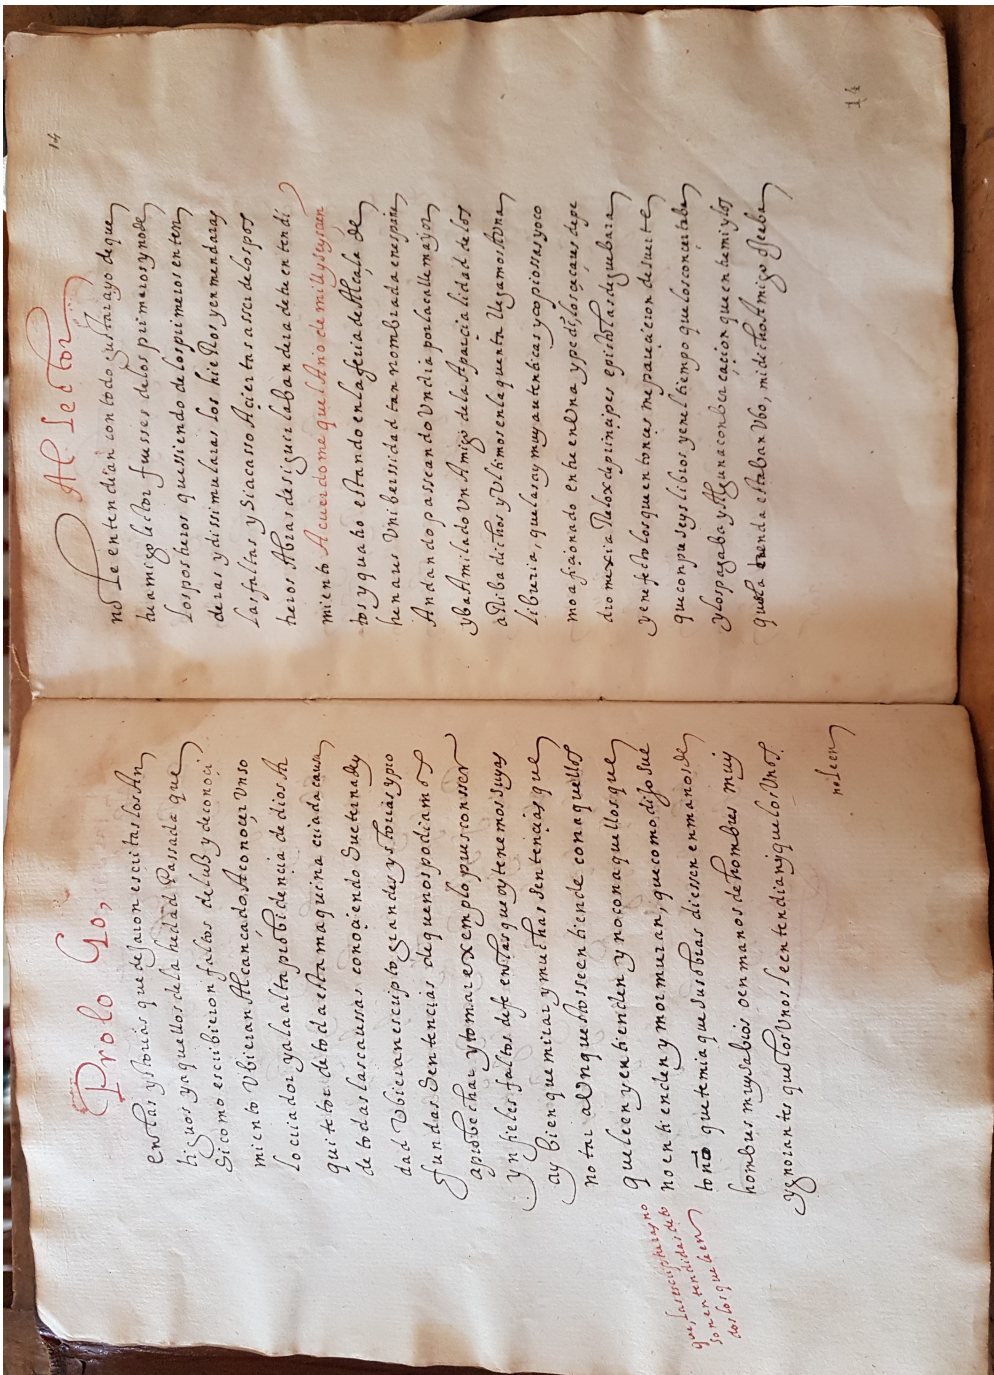 Prolo Go,
en las ystorias que dejaron escritas los An
tiguos y aquellos de la hedad Passada que
Si como escribieron faltos de luz y de conoci
miento Vbieran Alcançado, A conoçer Vn so
lo criador y a la alta probidencia de dios Ar
quitetor de toda esta maquina criada causa
de todas las caussas conoçiendo Su eternady
dad Vbieran escripto grandes ystorias y pro
fundas Sentencias de que nos podiamos
aprobechar y tomar exemplo pues con sser
ynfieles faltos de fe en las que oy tenemos suyas
ay bien que mirar y muchas sentencias que
notar aVnque no sse entiende con aquellos
que leen y entienden y no con aquellos que
no entienden y mormuran, que como dijo Sue
tonio que temia que sus obras diessen en manos de
hombres muy sabios o en manos de hombres muy
ygnorantes que los Vnos le entendian y que los Vnos
no le en
que, las escripturas no
son entendidas de to
dos los que leen
Al Lector
14
no le entendian con todo gustara yo de que
tu amigo lector fuesses de los primeros y no de
los postreros que ssiendo de los primeros enten
deras y dissimularas los hierros y enmendaras
las faltas y Si acasso Aciertas a sser de los pos
treros Abras de siguir la bandera de tu entendi
miento Acuerdome que el Ano de mill y seycien
tos y quatro estando en la feria de Alcala de
henares Unibersidad tan nombrada en españa
Andando passeando Un dia por la calle mayor
yba A mi lado Un Amigo de la Aparcialidad de los
arriba dichos y Ultimos en la quenta llegamos A Una
libreria, que las ay muy autenticas y copiossas y yo co
mo afiçionado entre en Una y pedi, los caçares de pe
dro mexia Relox de prinçipes epistolas de guebara
y en efeto los que entonces me pareçieron de suerte
que conpre seys libros y en el tiempo que los conçertaba
y los pagaba y Alguna conbersaçion que entre mi y los
que en la tienda estaban Vbo, mi dicho Amigo estaba
14